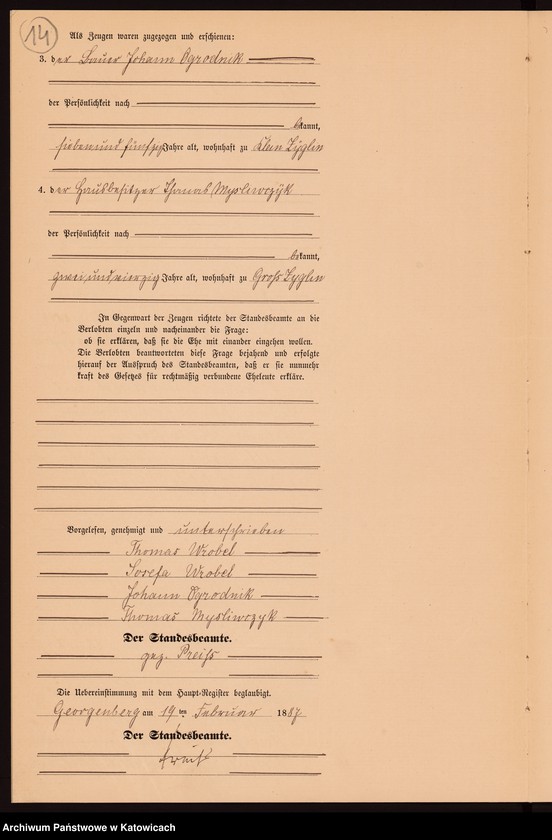 14
Als Zeugen waren zugezogen und erschienen:
3. der Bauer Johann Ogrodnik
der Persönlichkeit nach
bekannt,
siebenundfünfzig Jahre alt, wohnhaft zu Klein Zyglin
4. der Hausbesitzer Thomas Mysliwczyk
der Persönlichkeit nach
bekannt,
zweiundvierzig Jahre alt, wohnhaft zu Groß Zyglin
In Gegenwart der Zeugen richtete der Standesbeamte an die
Verlobten einzeln und nacheinander die Frage:
ob sie erklären, daß sie die Ehe mit einander eingehen wollen.
Die Verlobten beantworteten diese Frage bejahend und erfolgte
hierauf der Ausspruch des Standesbeamten, daß er sie nunmehr
kraft des Gesetzes für rechtmäßig verbundene Eheleute erkläre.
Vorgelesen, genehmigt und unterschrieben
Thomas Wrobel
Josefa Wrobel
Johann Ogrodnik
Thomas Mysliwczyk
Der Standesbeamte.
gez. Preiß
Die Uebereinstimmung mit dem Haupt-Register beglaubigt.
Georgenberg am 19ten Februar 1887
Der Standesbeamte.
Archiwum Państwowe w Katowicach